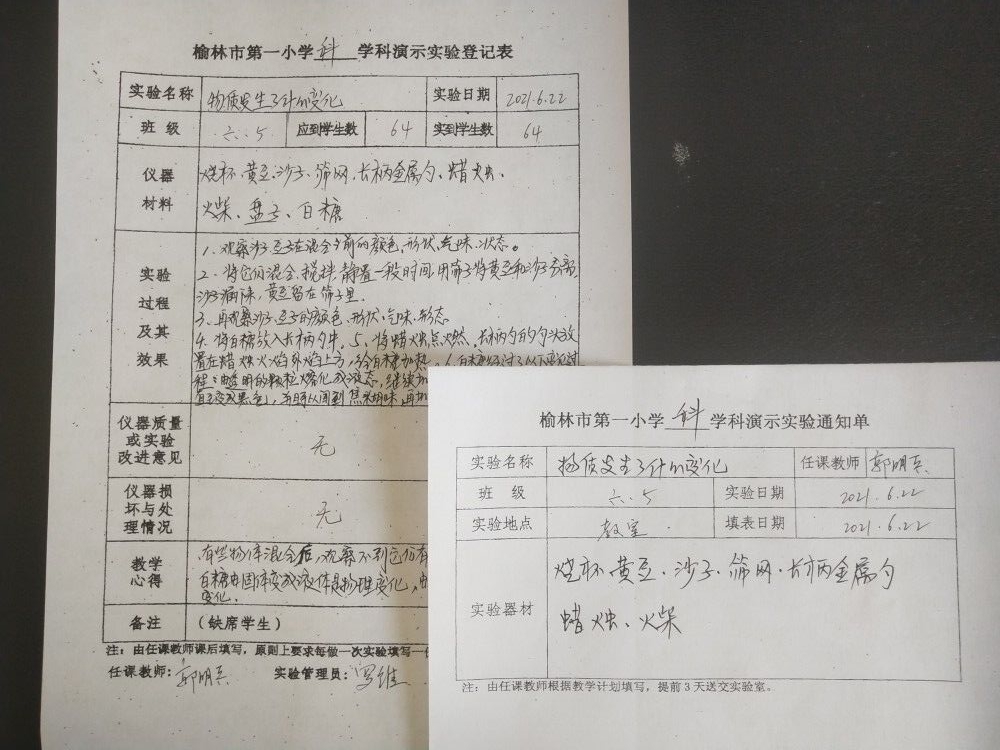 榆林市第一小学 科 学科演示实验登记表
实验名称 物质发生了什么变化 实验日期 2021.6.22
班 级 六.5 应到学生数 64 实到学生数 64
仪器
材料
烧杯、黄豆、沙子、筛网、长柄金属勺、蜡烛、
火柴、盘子、白糖
实验
过程
及其
效果
1、观察沙子、豆子在混合之前的颜色、形状、气味、状态。
2、将它们混合、搅拌、静置一段时间,用筛子将黄豆和沙子分离,
沙子漏下来,黄豆留在筛子里。
3、再观察沙子、豆子的颜色、形状、气味、形态
4、将白糖放入长柄勺中。5、将蜡烛点燃、长柄勺的勺头放
置在蜡烛火焰外焰上方,给白糖加热。6、白糖经过了以下变化过
程:由透明的颗粒熔化成液态,继续加
直至变成黑色,并可以闻到焦糊味,再加
仪器质量
或实验
改进意见
无
仪器损
坏与处
理情况
无
教学
心得
有些物体混合后,观察不到它们有
白糖由固体变成液体是物理变化,由
变化。
备注 (缺席学生)
注:由任课教师课后填写,原则上要求每做一次实验填写一
任课教师:郭明兵 实验管理员:罗维
榆林市第一小学 科 学科演示实验通知单
实验名称 物质发生了什么变化 任课教师 郭明兵
班 级 六.5 实验日期 2021.6.22
实验地点 教室 填表日期 2021.6.22
实验器材
烧杯、黄豆、沙子、筛网、长柄金属勺
蜡烛、火柴
注:由任课教师根据教学计划填写,提前3天送交实验室。